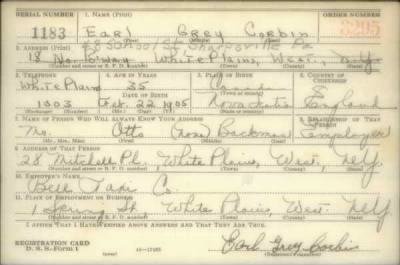 SERIAL NUMBER 1. NAME (Print) ORDER NUMBER
1183 Earl Grey Corbin 3295
2. ADDRESS (Print) 48 School St. Sharpsville Pa
18 No B'way White Plains, West., N.Y.
(Number and street or R. F. D. number) (Town) (County) (State)
3. TELEPHONE 4. AGE IN YEARS 5. PLACE OF BIRTH 6. COUNTRY OF CITIZENSHIP
White Plains 35
DATE OF BIRTH
1003 Feb. 22 1905 Nova Scotia England
(Exchange) (Number) (Mo.) (Day) (Yr.) (State or country)
7. NAME OF PERSON WHO WILL ALWAYS KNOW YOUR ADDRESS 8. RELATIONSHIP OF THAT PERSON
Mr. Otto (none) Backman Employer
(Mr., Mrs., Miss) (First) (Middle) (Last)
9. ADDRESS OF THAT PERSON
28 Mitchell Pl., White Plains, West., N.Y.
(Number and street or R. F. D. number) (Town) (County) (State)
10. EMPLOYER'S NAME
Bell Taxi Co.
11. PLACE OF EMPLOYMENT OR BUSINESS
1 Spring St White Plains, West. N.Y.
(Number and street or R. F. D. number) (Town) (County) (State)
I AFFIRM THAT I HAVE VERIFIED ABOVE ANSWERS AND THAT THEY ARE TRUE.
REGISTRATION CARD
D. S. S. Form 1 16—17105 Earl Grey Corbin